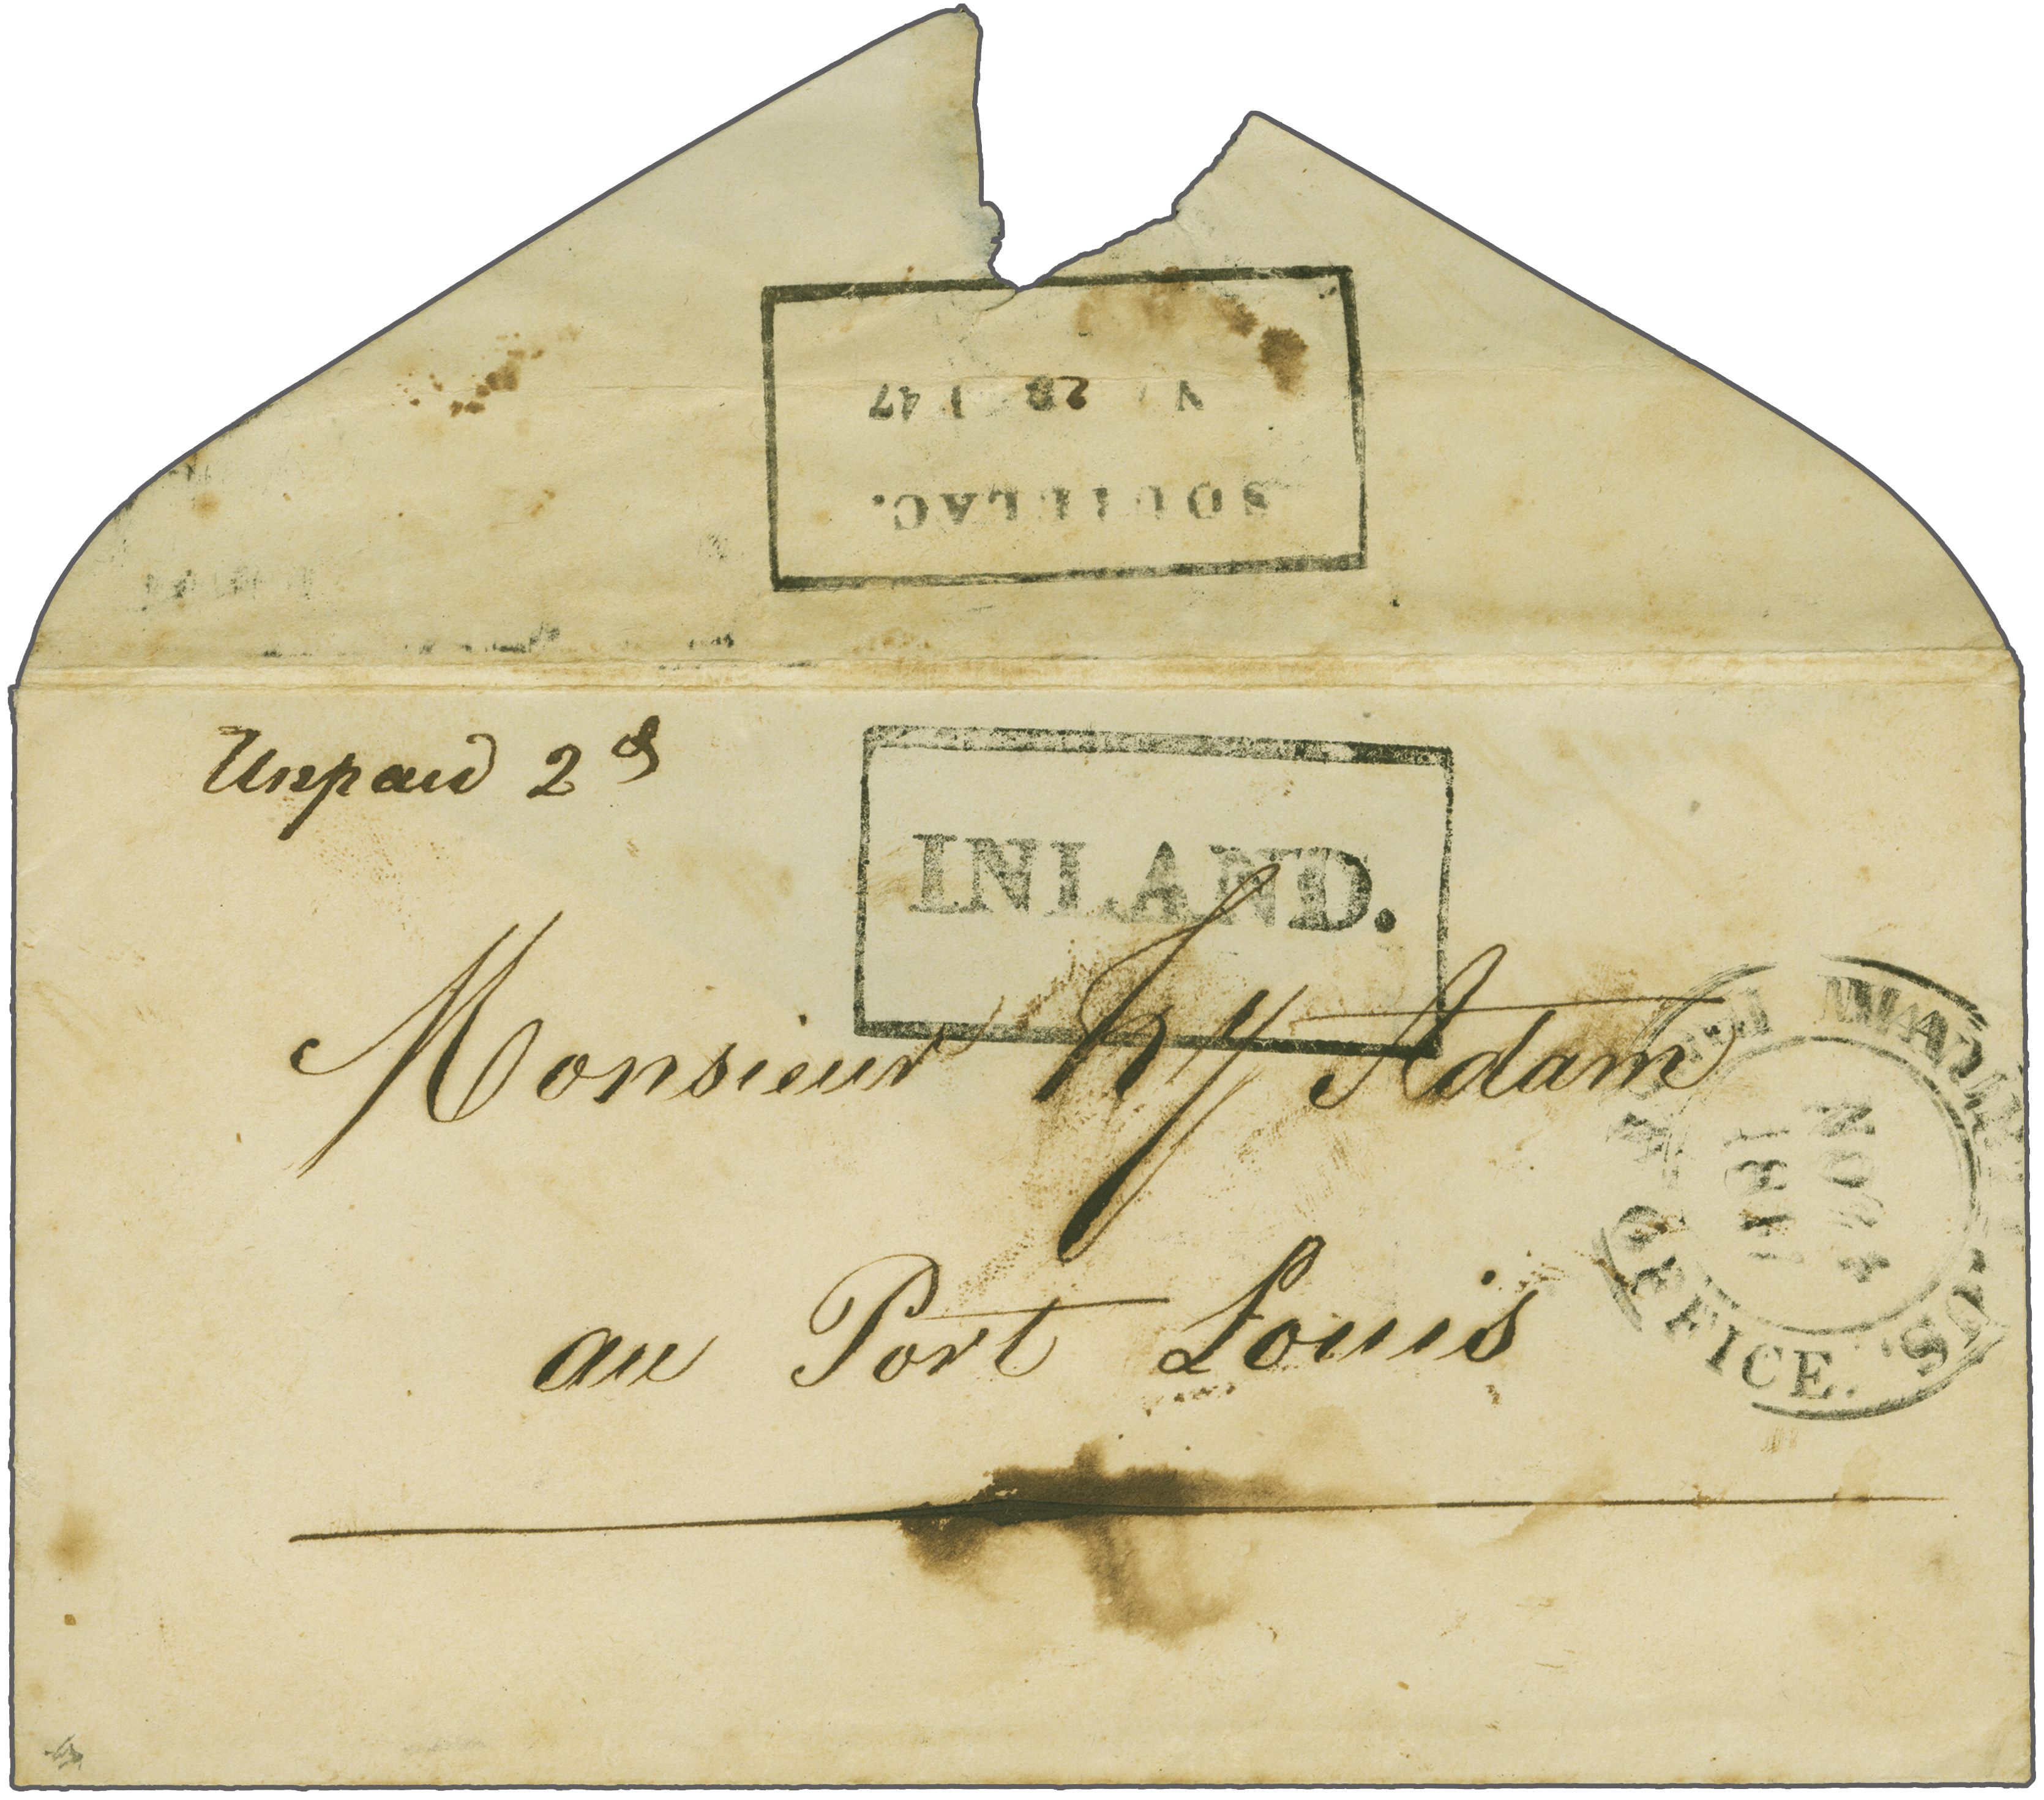 SOUILLAC.
28 47
Unpaid 2d
INLAND.
Monsieur hy Adam
au Port Louis
OFFICE.
NOV